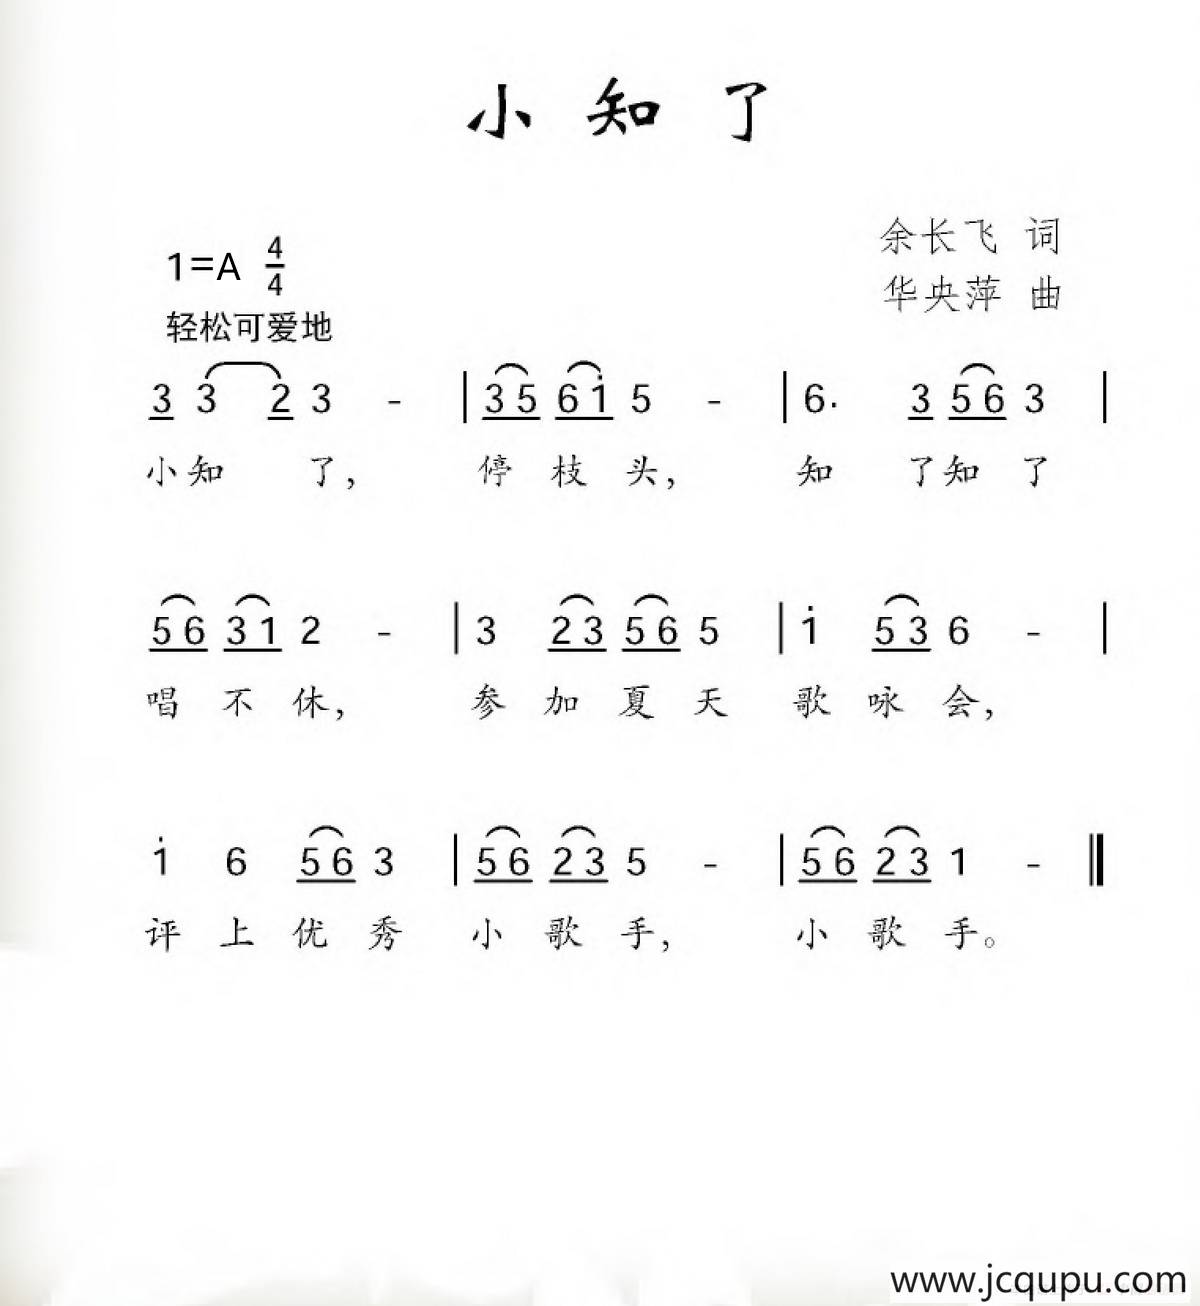 小知了
余长飞 词
1=A 4/4
华央萍 曲
轻松可爱地
3 3 2 3 - | 3 5 6 i 5 - | 6. 3 5 6 3 |
小知 了, 停 枝 头, 知 了知 了
5 6 3 1 2 - | 3 2 3 5 6 5 | i 5 3 6 - |
唱 不 休, 参 加 夏 天 歌 咏 会,
i 6 5 6 3 | 5 6 2 3 5 - | 5 6 2 3 1 - ‖
评 上 优 秀 小 歌 手, 小 歌 手。
www.jcqupu.com